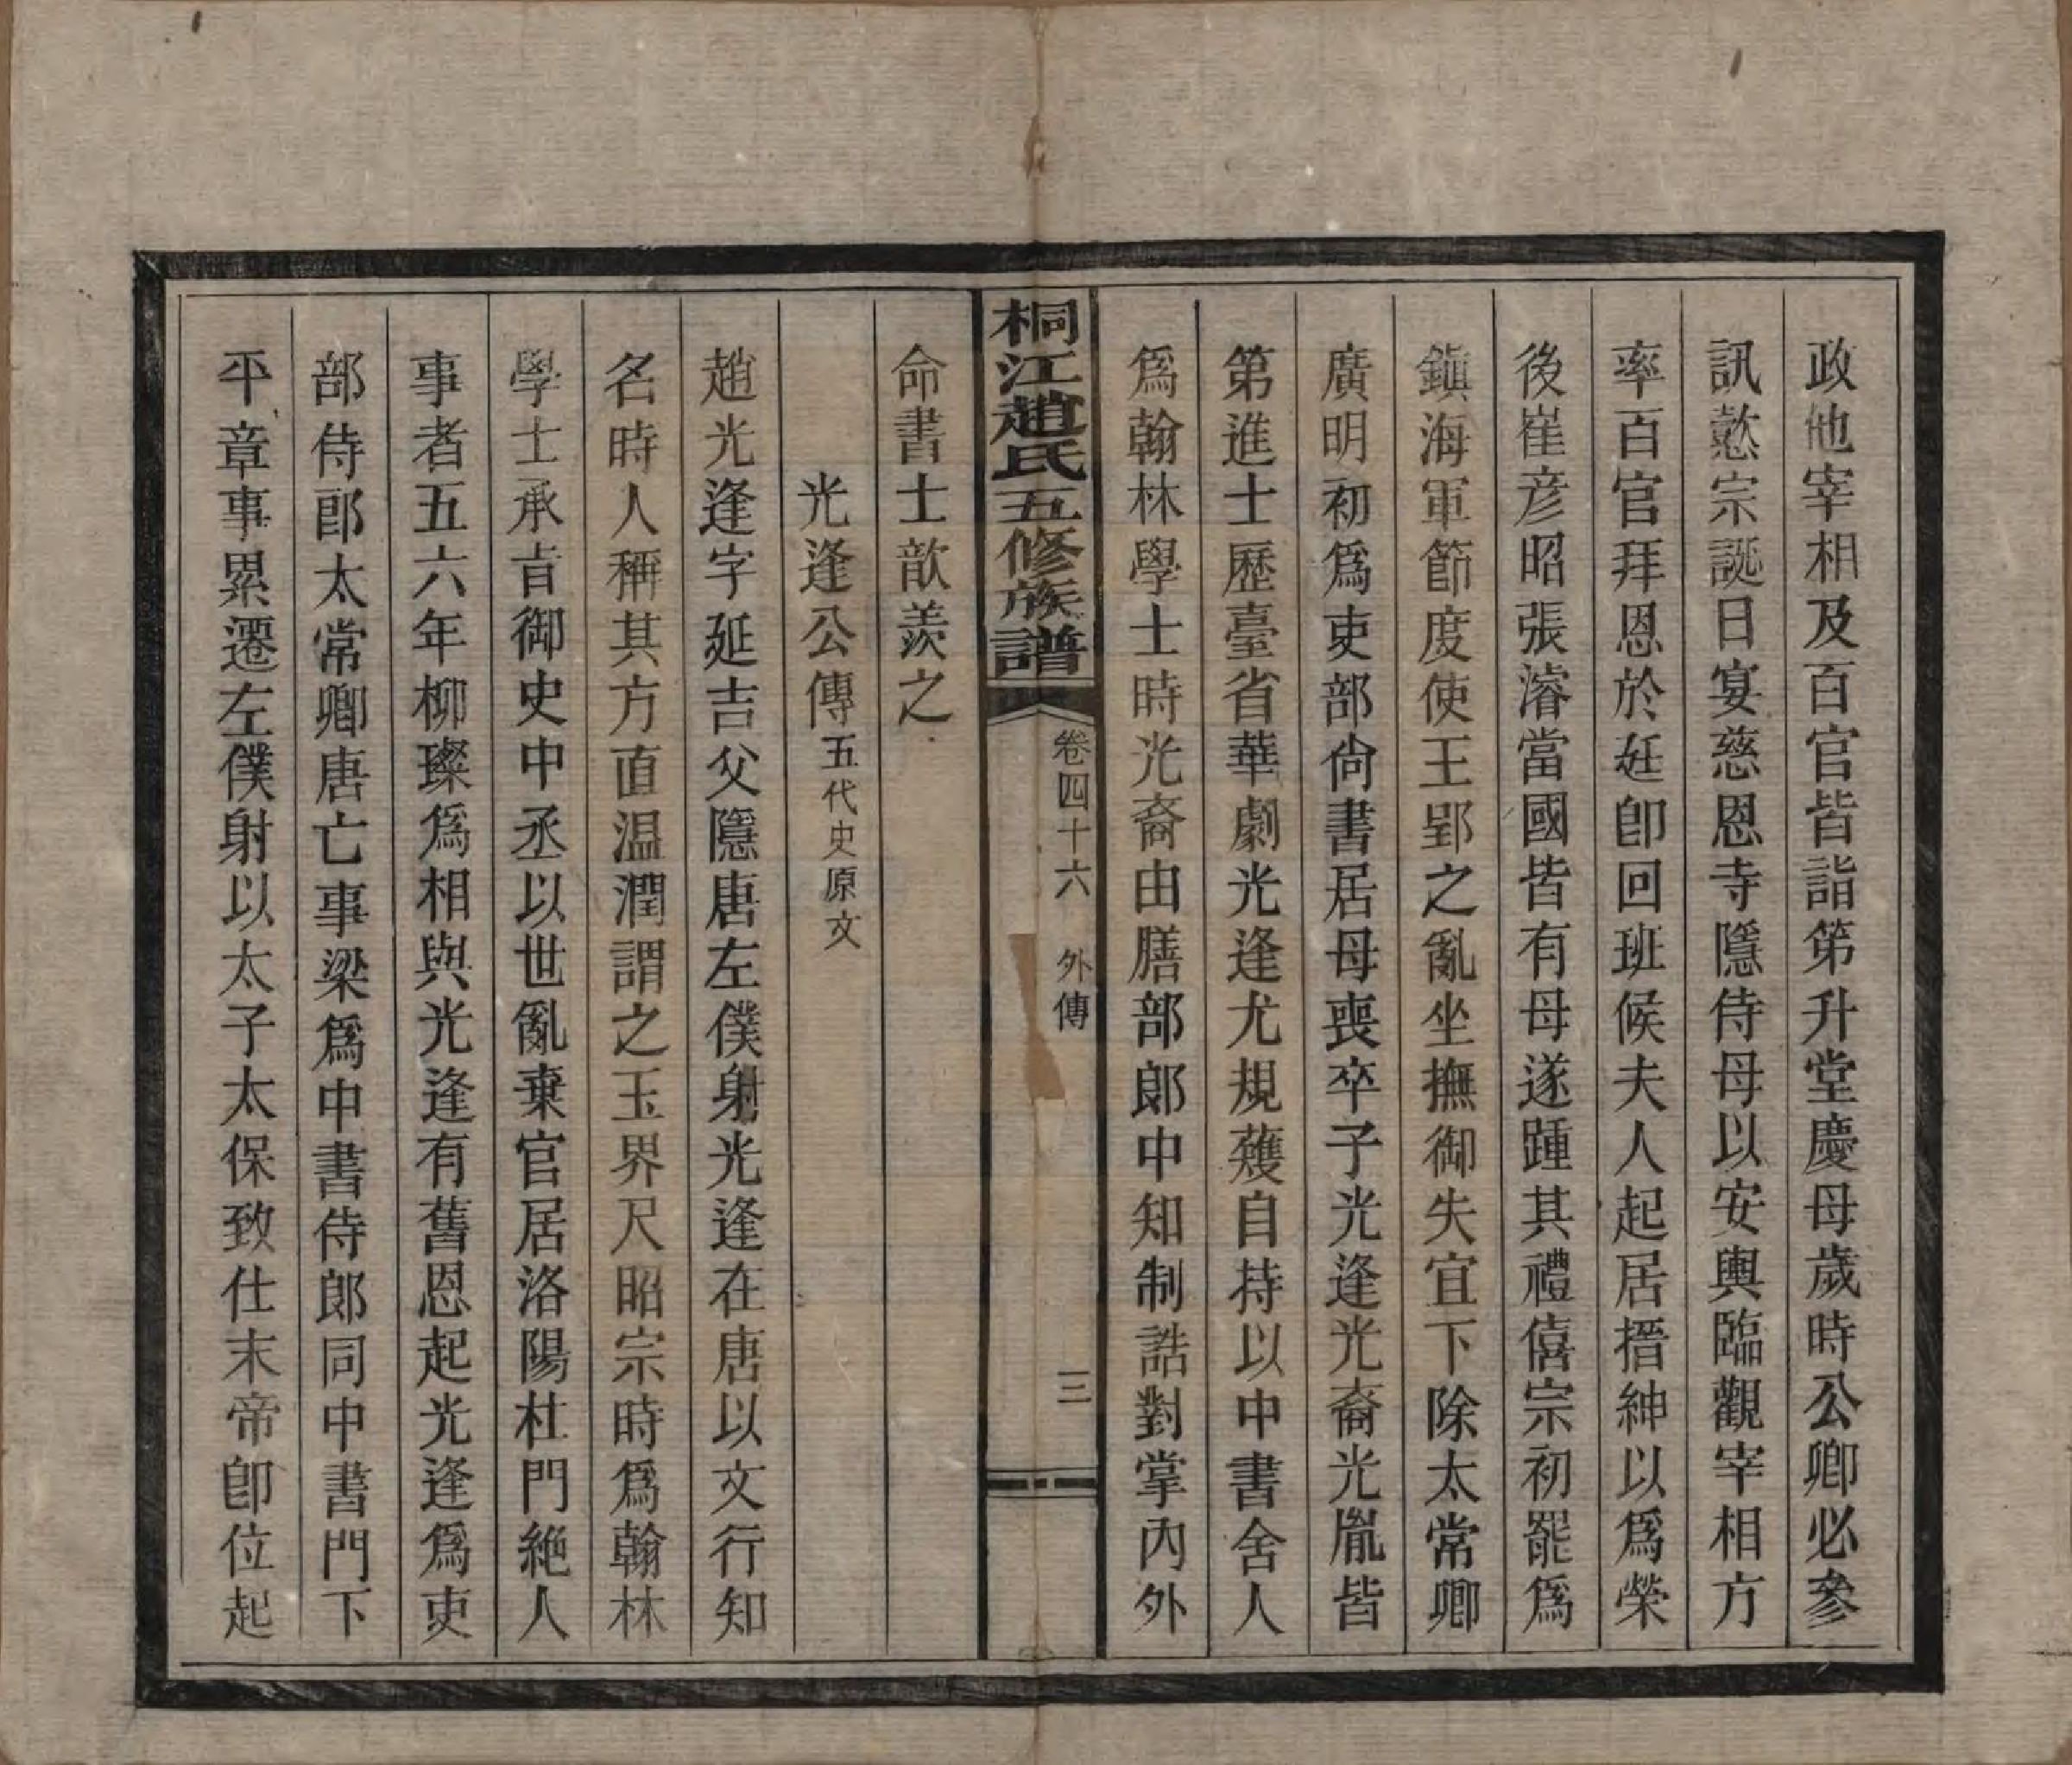 政他宰相及百官皆詣第升堂慶母歲時公卿必參
訊懿宗誕日宴慈恩寺隱侍母以安輿臨觀宰相方
率百官拜恩於廷卽回班候夫人起居搢紳以爲榮
後崔彦昭張濬當國皆有母遂踵其禮僖宗初罷爲
鎭海軍節度使王郢之亂坐撫御失宜下除太常卿
廣明初爲吏部尙書居母喪卒子光逢光裔光胤皆
第進士歷臺省華劇光逢尤規蒦自持以中書舍人
爲翰林學士時光裔由膳部郞中知制誥對掌內外
桐江趙氏五修族譜
卷四十六 外傳
三
命書士歆羨之
光逢公傳五代史原文
趙光逢字延吉父隱唐左僕射光逢在唐以文行知
名時人稱其方直温潤謂之玉界尺昭宗時爲翰林
學士承旨御史中丞以世亂棄官居洛陽杜門絶人
事者五六年柳璨爲相與光逢有舊恩起光逢爲吏
部侍郎太常卿唐亡事梁爲中書侍郞同中書門下
平章事累遷左僕射以太子太保致仕末帝卽位起